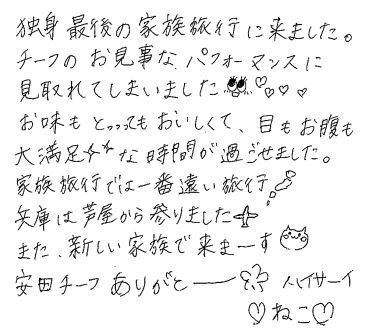 独身最後の家族旅行に来ました。
チーフのお見事なパフォーマンスに
見取れてしまいました
お味もとっってもおいしくて、目もお腹も
大満足な時間が過ごせました。
家族旅行では一番遠い旅行
兵庫は芦屋から参りました
また、新しい家族で来まーす
安田チーフありがとーー ハイサーイ
♡ねこ♡